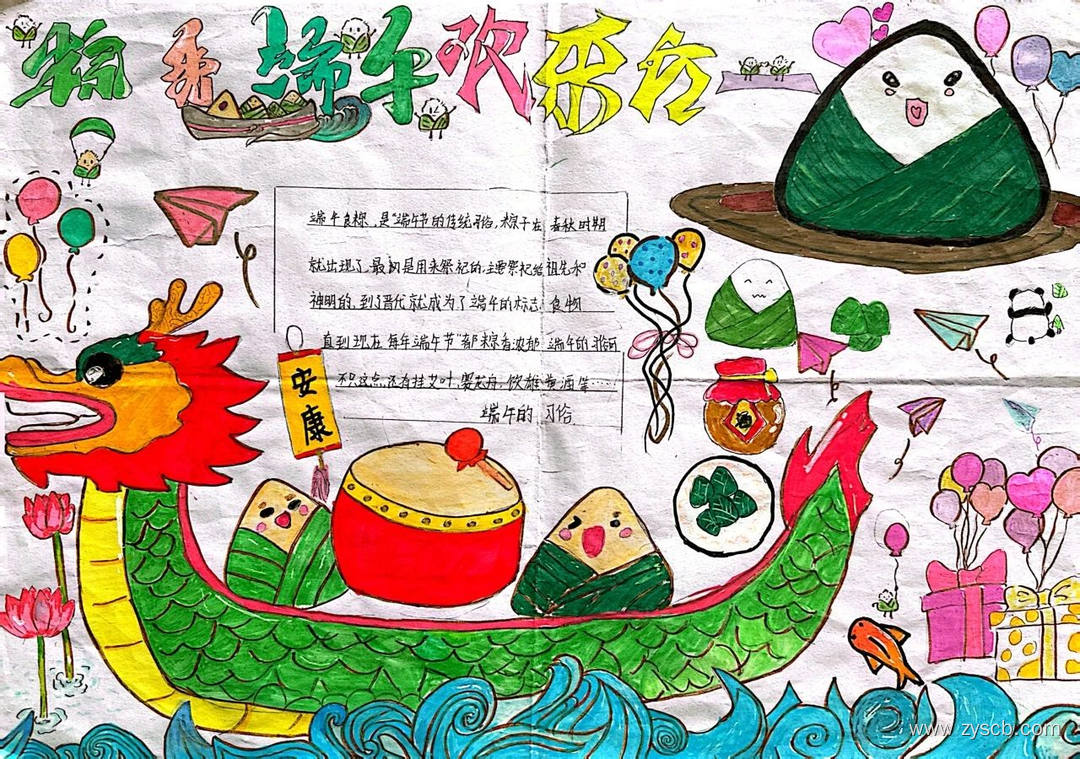 粽香端午欢乐
端午食粽,是端午节的传统习俗,粽子在春秋时期
就出现了,最初是用来祭祀的,主要祭祀给祖先和
神明的,到了晋代就成为了端午的标志食物
直到现在每年端午节"都"粽香浓郁,端午的习俗
不只这点,还有挂艾叶,赛龙舟,饮雄黄酒等……
端午的习俗
安康
酒
www.zyscb.com